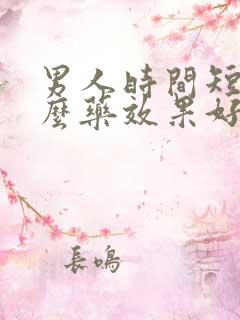 男人時間短
麼藥效果好
長鳴